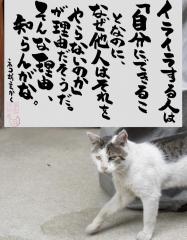 イライラする人は
「自分にできるこ
となのに、
なぜ他人はそれを
やらないのか」
が理由だそうだ。
そんな理由、
知らんがな。